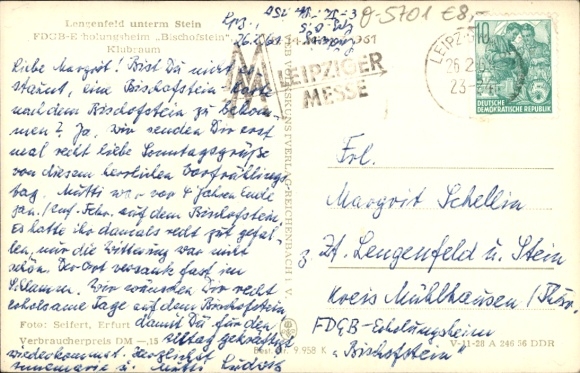 Lengenfeld unterm Stein
FDGB-Erholungsheim „Bischofstein"
Klubraum
Lpz.,
26.2.61
O-5701 €8,-
Liebe Margrit! Bist Du nicht er-
staunt, eine Bischofstein-Karte
nach dem Bischofstein zu bekom-
men? Ja, wir senden Dir erst
mal recht liebe Sonntagsgrüße
von diesem herrlichen Vorfrühlings-
tag. Mutti war vor 4 Jahren Ende
Jan./Anf. Febr. auf dem Bischofstein.
Es hatte ihr damals recht gut gefal-
len, nur die Witterung war nicht
schön. Der Ort versank fast im
Schlamm. Wir wünschen Dir recht
erholsame Tage auf dem Bischofstein
damit Du für den
Alltag gekräftigt
wiederkommst. Herzlichst
Annemarie u. Mutti Ludwig
Foto: Seifert, Erfurt
Verbraucherpreis DM —,15
Best.-Nr. 9.958 K
V-11-28 A 246 56 DDR
REICHENBACH i. V.
1961
LEIPZIGER
MESSE
LEIPZIG
26.2.
23-
10
DEUTSCHE
DEMOKRATISCHE REPUBLIK
Frl.
Margrit Schellin
z. Zt. Lengenfeld u. Stein
Kreis Mühlhausen / Thür.
FDGB-Erholungsheim
„Bischofstein"